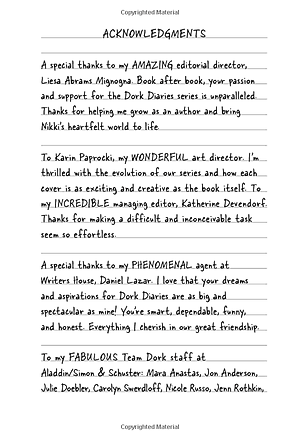 Copyrighted Material
ACKNOWLEDGMENTS
A special thanks to my AMAZING editorial director,
Liesa Abrams Mignogna. Book after book, your passion
and support for the Dork Diaries series is unparalleled.
Thanks for helping me grow as an author and bring
Nikki's heartfelt world to life.
To Karin Paprocki, my WONDERFUL art director. I'm
thrilled with the evolution of our series and how each
cover is as exciting and creative as the book itself. To
my INCREDIBLE managing editor, Katherine Devendorf.
Thanks for making a difficult and inconceivable task
seem so effortless.
A special thanks to my PHENOMENAL agent at
Writers House, Daniel Lazar. I love that your dreams
and aspirations for Dork Diaries are as big and
spectacular as mine! You're smart, dependable, funny,
and honest. Everything I cherish in our great friendship.
To my FABULOUS Team Dork staff at
Aladdin/Simon & Schuster: Mara Anastas, Jon Anderson,
Julie Doebler, Carolyn Swerdloff, Nicole Russo, Jenn Rothkin,
Copyrighted Material